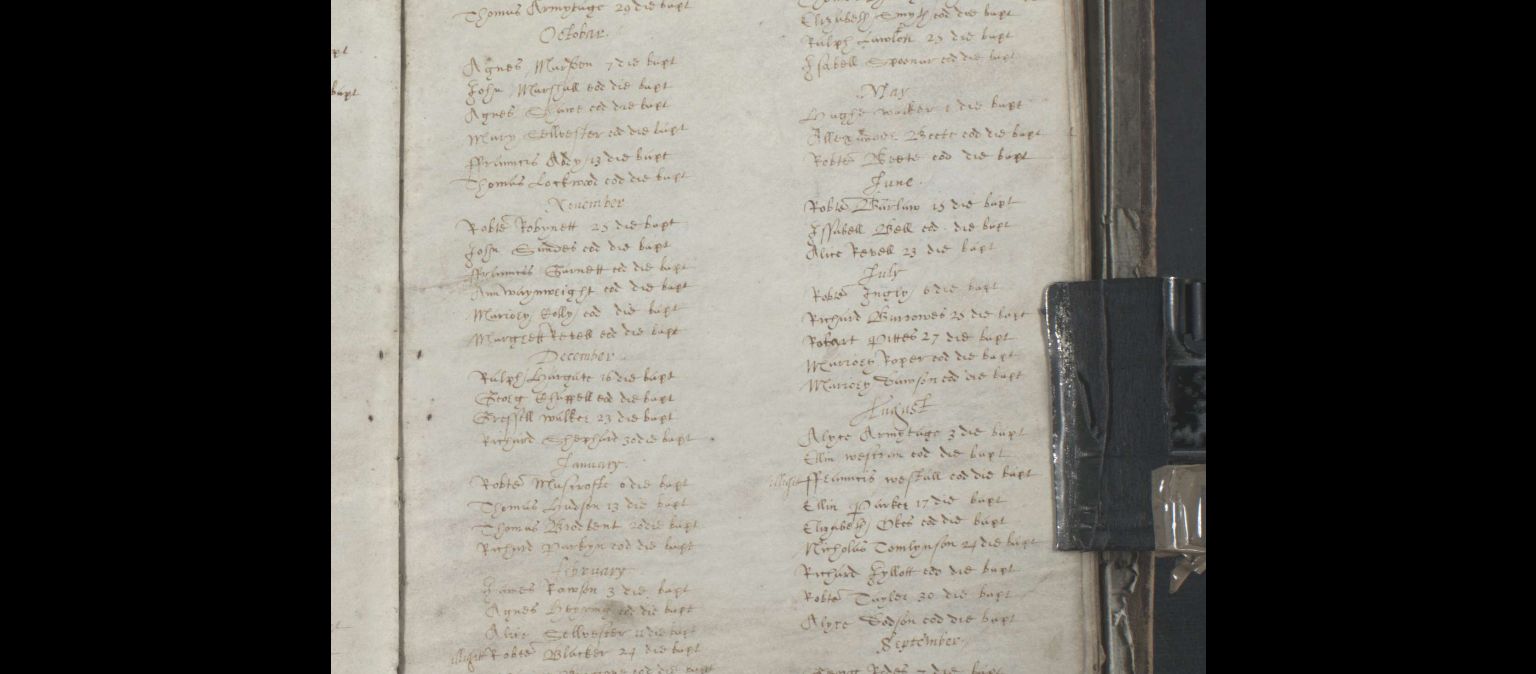 pt
bapt
Thomas Armytage 29 die bapt
October
Agnes Marsden 7 die bapt
John Marshall eod die bapt
Agnes eod die bapt
Mary Sellvester eod die bapt
ffrauncis Addy 13 die bapt
Thomas Lockwod eod die bapt
November
Robte Robynett 25 die bapt
John eod die bapt
ffrauncis Garnett eod die bapt
Ann waynwright eod die bapt
Mariory Colly eod die bapt
Margrett Revell eod die bapt
December
Ralph Hargate 16 die bapt
Georg Chappell eod die bapt
Gressill walker 23 die bapt
Richard Shephard 30 die bapt
January
Robte Muscrofte 6 die bapt
Thomas Hudson 13 die bapt
Thomas Brodbent 20 die bapt
Richard Parkyn eod die bapt
february
James Rawson 3 die bapt
Agnes eod die bapt
Alice Sellvester 11 die bapt
illigit Robte Blacker 24 die bapt
eod die bapt
Elizabeth Smyth eod die bapt
Ralph Lawlott 25 die bapt
Isabell Spooner eod die bapt
May
Hughe walker 1 die bapt
Allexander Beete eod die bapt
Robte Beete eod die bapt
June
Robte Barlaw 15 die bapt
Issabell Bell eod die bapt
Alice Revell 23 die bapt
July
Robte Ingly 6 die bapt
Richard Burrowes 25 die bapt
Robart Pittes 27 die bapt
Marriory Roper eod die bapt
Mariory Dawson eod die bapt
August
Alyce Armytage 3 die bapt
Ellin westran eod die bapt
illigit ffrauncis westall eod die bapt
Ellin Parker 17 die bapt
Elizabeth Okes eod die bapt
Nicholas Tomlynson 24 die bapt
Richard Jyllott eod die bapt
Robte Tayler 30 die bapt
Alyce Dodson eod die bapt
September
die bapt